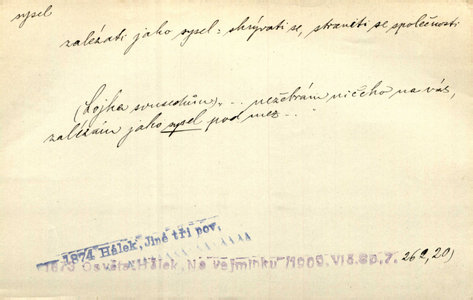 sysel
zalézati jako sysel: skrývati se, straniti se společnosti
(Lojka sousedům). ... nežebrám ničeho na vás,
zalézám jako sysel pod mez...
1874 Hálek, Jiné tři pov.
1873 Osvěta. Hálek, Na vejminku /1909. Vil. Sp. 7. 262, 20)